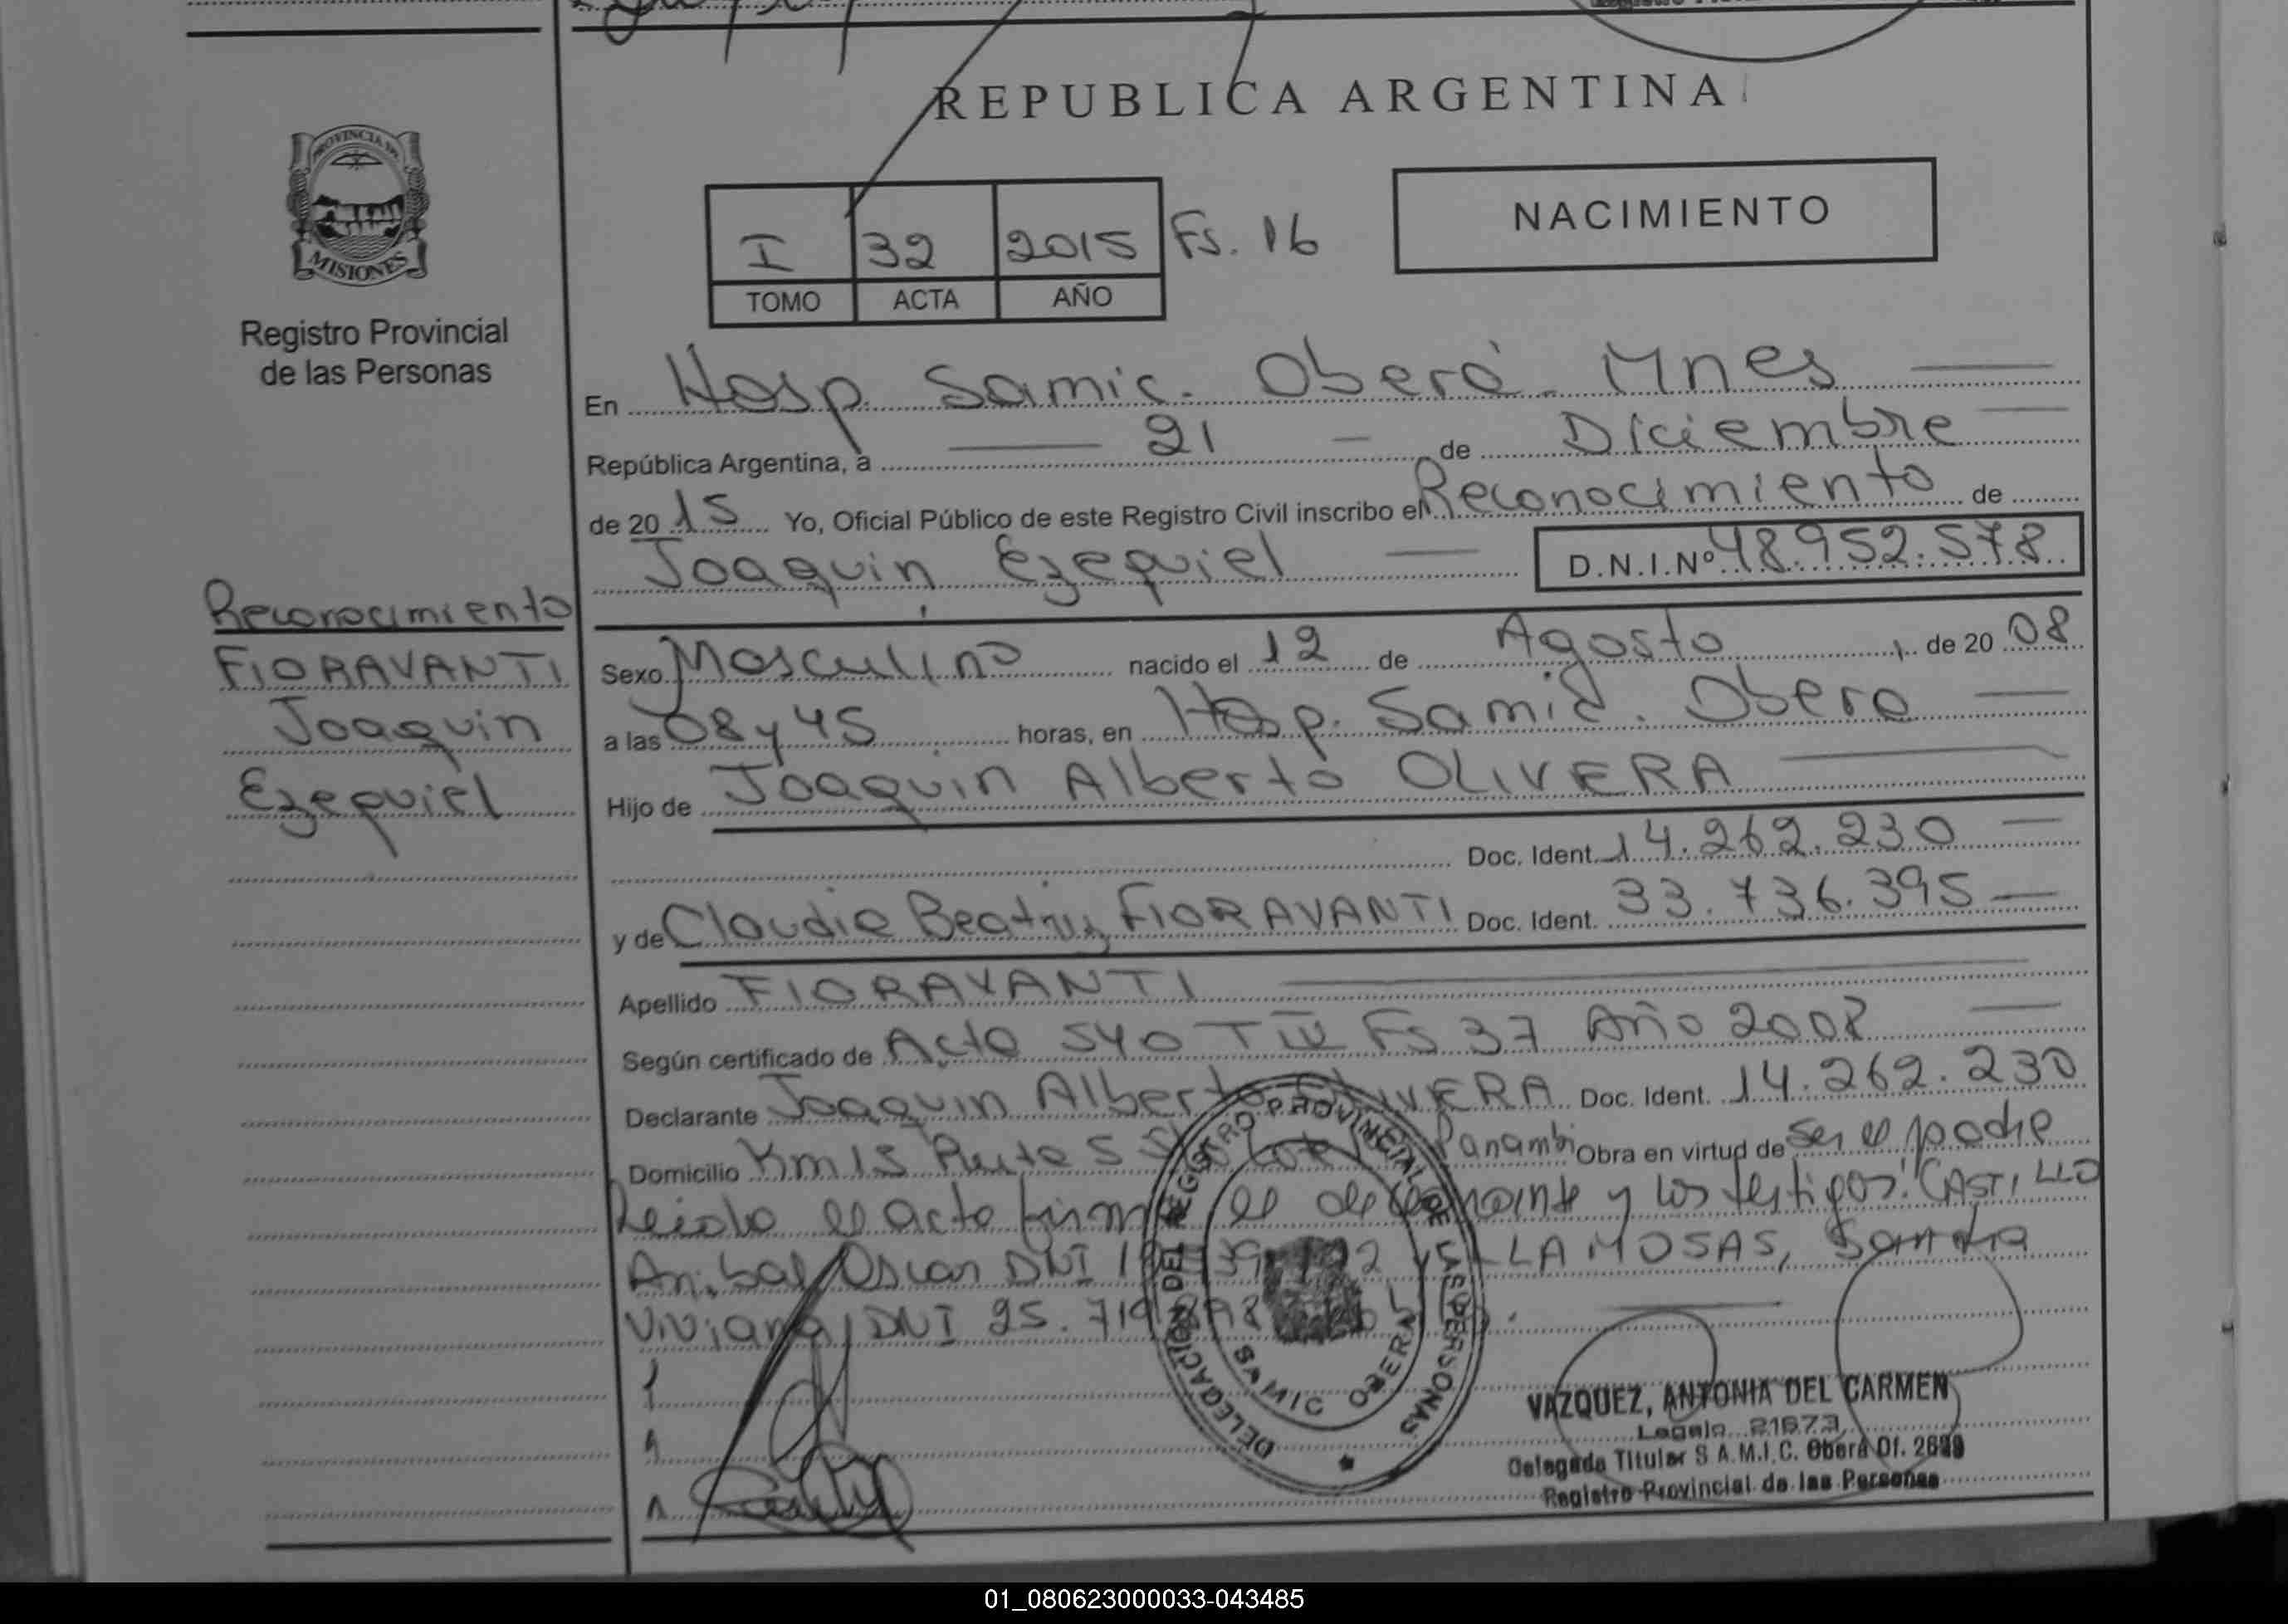 REPUBLICA ARGENTINA
PROVINCIA DE
MISIONES
Registro Provincial
de las Personas
I 32 2015 Fs. 16
TOMO ACTA AÑO
NACIMIENTO
En Hosp. Samic. Oberá. Mnes
República Argentina, a 21 de Diciembre
de 2015 Yo, Oficial Público de este Registro Civil inscribo el Reconocimiento de
Joaquin Ezequiel D.N.I.Nº 48.952.578
Reconocimiento
FIORAVANTI
Joaquin
Ezequiel
Sexo Masculino nacido el 12 de Agosto de 2008
a las 08 y 45 horas, en Hosp. Samic. Obera
Hijo de Joaquin Alberto OLIVERA
Doc. Ident. 14.262.230
y de Claudia Beatriz FIORAVANTI Doc. Ident. 33.736.395
Apellido FIORAVANTI
Según certificado de Acta 540 T IV Fs 37 Año 2008
Declarante Joaquin Alberto OLIVERA Doc. Ident. 14.262.230
Domicilio Km 15 Ruta 5 Panambi Obra en virtud de ser el padre
Leida el acta firma el declarante y los testigos: CASTILLO
Anibal Oscar DNI VILLAMOSAS, Sandra
Viviana DNI 25.719.898
DELEGACIÓN DEL REGISTRO PROVINCIAL DE LAS PERSONAS
SAMIC OBERA
VAZQUEZ, ANTONIA DEL CARMEN
Legajo 21673
Delegada Titular S.A.M.I.C. Oberá Of. 2689
Registro Provincial de las Personas
01_080623000033-043485